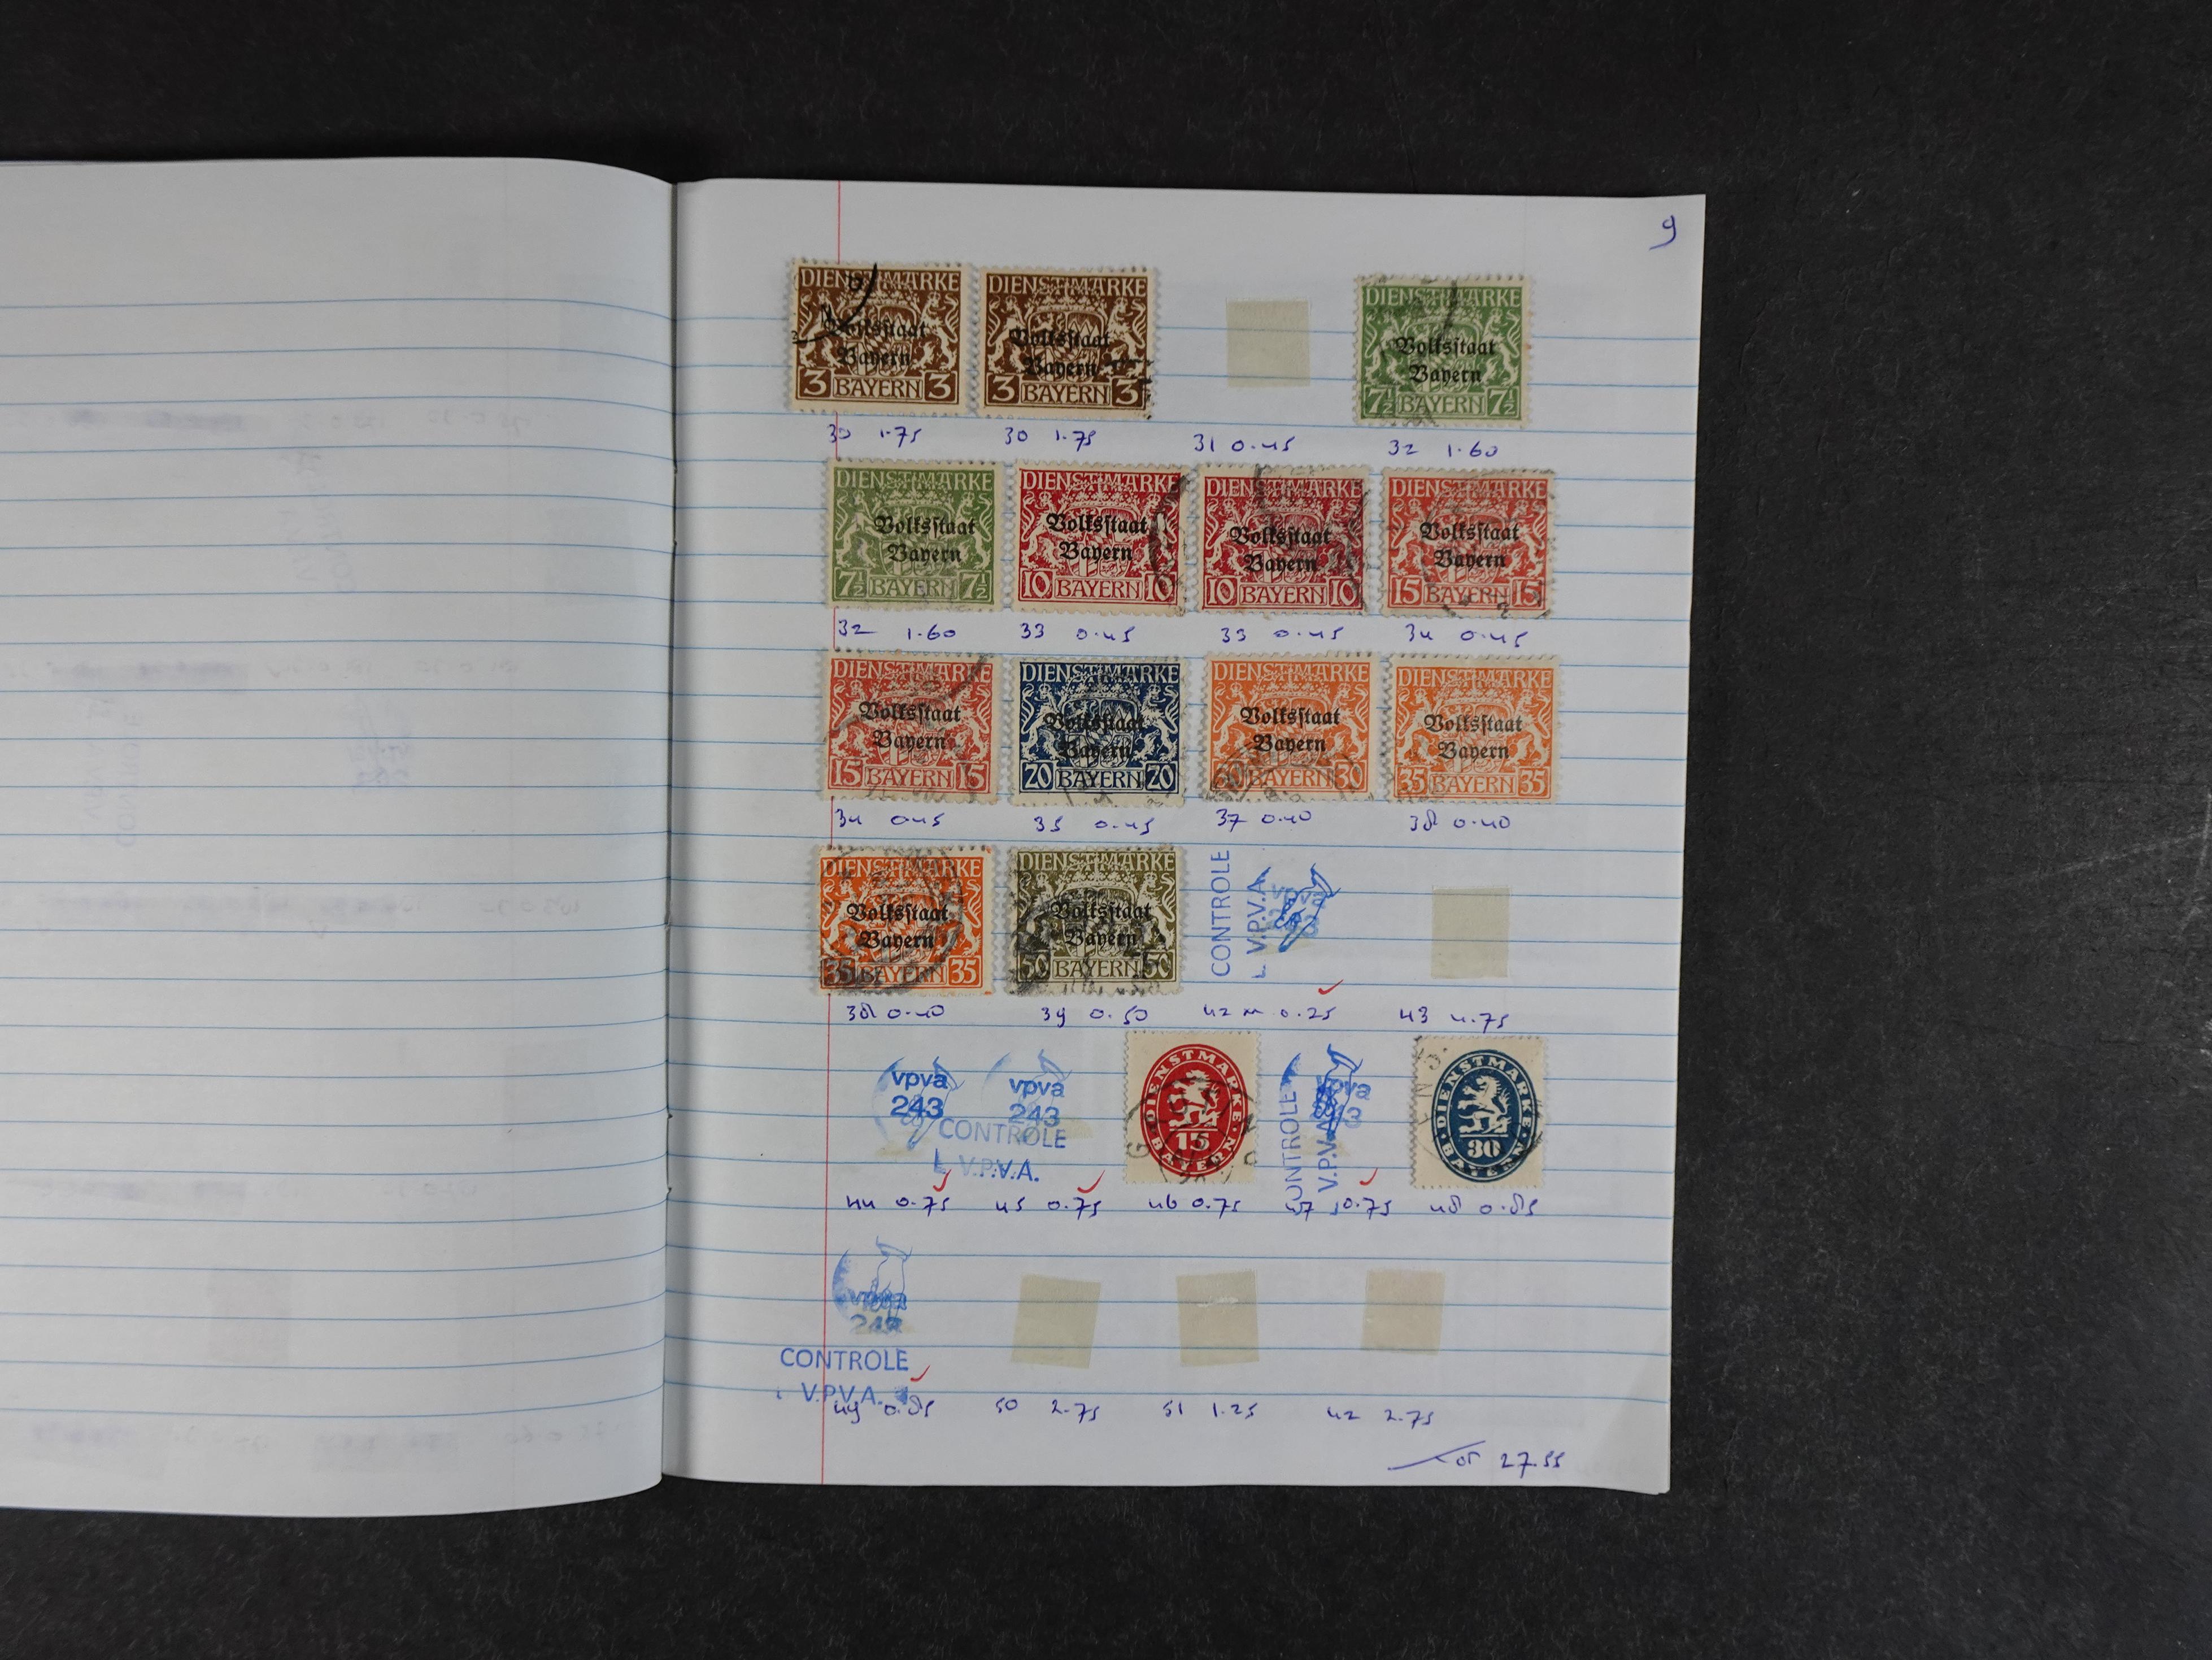 9
DIENSTMARKE DIENSTMARKE DIENSTMARKE
Volksstaat Volksstaat Volksstaat
Bayern Bayern Bayern
3 BAYERN 3 3 BAYERN 3 7½ BAYERN 7½
30 1.75 30 1.75 31 0.45 32 1.60
DIENSTMARKE DIENSTMARKE DIENSTMARKE DIENSTMARKE
Volksstaat Volksstaat Volksstaat Volksstaat
Bayern Bayern Bayern Bayern
7½ BAYERN 7½ 10 BAYERN 10 10 BAYERN 10 15 BAYERN 15
32 1.60 33 0.45 33 0.45 34 0.45
DIENSTMARKE DIENSTMARKE DIENSTMARKE DIENSTMARKE
Volksstaat Volksstaat Volksstaat Volksstaat
Bayern Bayern Bayern Bayern
15 BAYERN 15 20 BAYERN 20 30 BAYERN 30 35 BAYERN 35
34 0.45 35 0.45 37 0.40 38 0.40
DIENSTMARKE DIENSTMARKE
Volksstaat Volksstaat
Bayern Bayern
35 BAYERN 35 50 BAYERN 50
CONTROLE
V.P.V.A.
38 0.40 39 0.50 42 0.25 43 4.75
vpva vpva
243 243
CONTROLE
V.P.V.A.
DIENSTMARKE
15
BAYERN
CONTROLE
V.P.V.A.
DIENSTMARKE
30
BAYERN
44 0.75 45 0.75 46 0.75 47 0.75 48 0.85
243
CONTROLE
V.P.V.A.
49 0.85 50 2.75 51 1.25 42 2.75
27.55